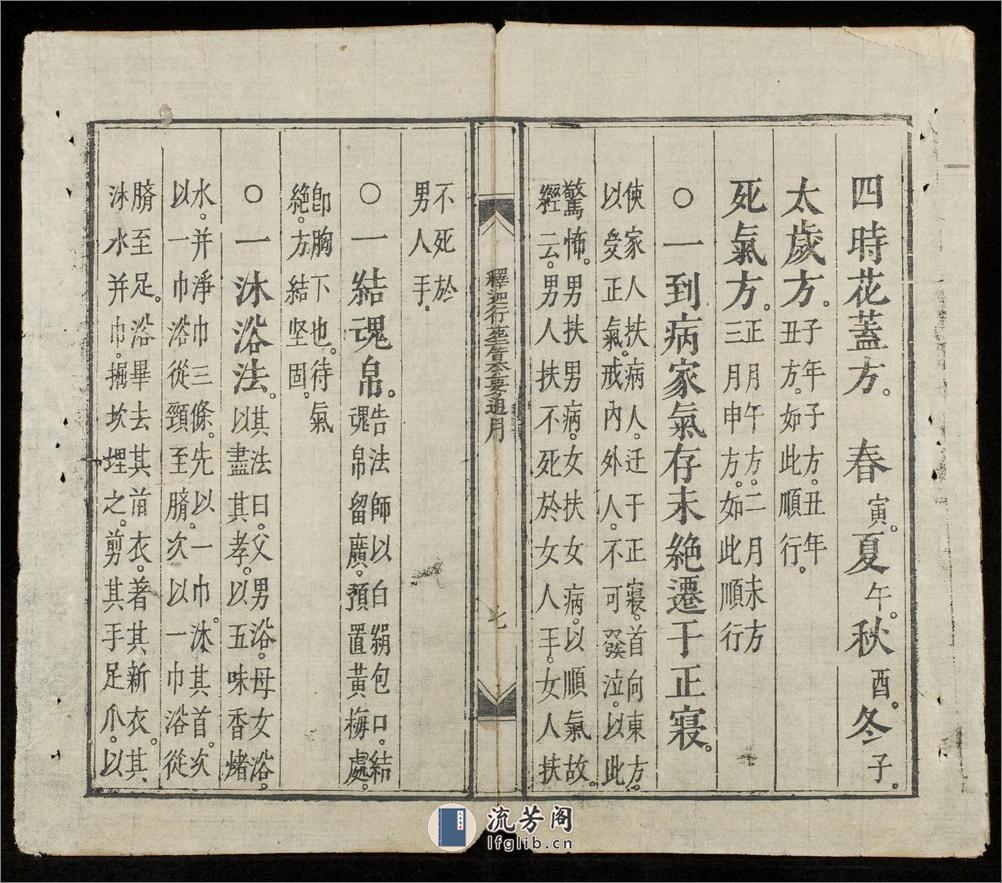 四時花蓋方。春寅。夏午。秋酉。冬子。
太歲方。子年子方。丑年
丑方。如此順行。
死氣方。正月午方。二月未方
三月申方。如此順行
○一到病家氣存未絶遷于正寢。
使家人扶病人。迁于正寢。首向東方。
以受正氣。戒內外人。不可泣。以此
驚怖。男扶男病。女扶女病。以順氣故。
經云。男人扶不死於女人手。女人扶
釋迦行
七
不死於
男人手。
○一結魂帛。告法師以白絹包口。結
魂帛留廣。預置黃梅處。
卽胸下也。待氣
絶。方結坚固。
○一沐浴法。其法曰。父男浴。母女浴。
以盡其孝。以五味香㷊
水。并淨巾三條。先以一巾。沐其首。次
以一巾浴從頸至臍。次以一巾浴從
臍至足。浴畢去其旧衣。著其新衣。其
沐水并巾。掘坎埋之。剪其手足爪。以
流芳阁
lfglib.cn